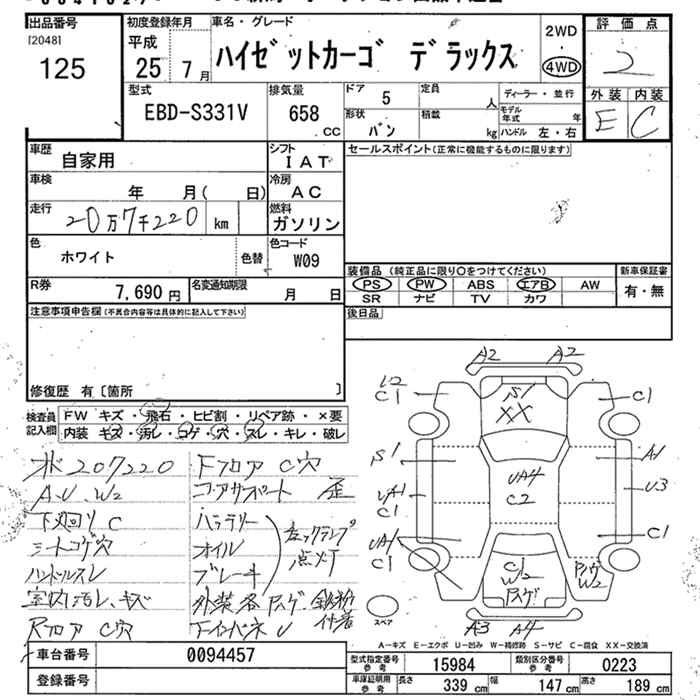 出品番号
[2048]
125
初度登録年月
平成
25 年 7 月
車名・グレード
ハイゼットカーゴ デラックス
2WD
・
4WD
評価点
2
外装 内装
E C
型式
EBD-S331V
排気量
658
CC
ドア 5
定員 人
ディーラー・並行
形状 バン
積載 kg
モデル年式 年
ハンドル 左・右
車歴
自家用
シフト
IAT
車検
年 月( 日)
冷房
AC
走行
20万7千220 km
燃料
ガソリン
色
ホワイト
色替
色コード
W09
R券
7,690 円
名変通知期限
月 日
セールスポイント(正常に機能するものに限ります)
装備品 (純正品に限り○をつけてください)
新車保証書
PS PW ABS エアB AW
SR ナビ TV カワ
有・無
後日品
注意事項申告欄(不具合内容等は具体的に記入して下さい)
修復歴 有〔箇所 〕
検査員記入欄
FW キズ・飛石・ヒビ割・リペア跡・×要
内装 キズ・汚レ・コゲ・穴・スレ・キレ・破レ
207220
A.U.W2
下廻り C
シートコゲ穴
ハンドルスレ
室内汚レ、キズ
Rフロア C穴
Fフロア C穴
コアサポート 歪
バッテリー
オイル
ブレーキ
チェックランプ
点灯
外装各ハゲ
鉄粉
付着
下インパネ U
A2 A2
U2
C1
S1
XX
C1
S1
UA4
C2
A1
UA1
C1
U3
UA1
C1
C1
C1
W2
ハゲ
ハゲ
W2
スペア
A3 A4
A-キズ E-エクボ U-凹み W-補修跡 S-サビ C-腐食 XX-交換済
車台番号
0094457
登録番号
型式指定番号
参考
15984
類別区分番号
参考
0223
車庫証明用
参考
長さ 339 cm
幅 147 cm
高さ 189 cm